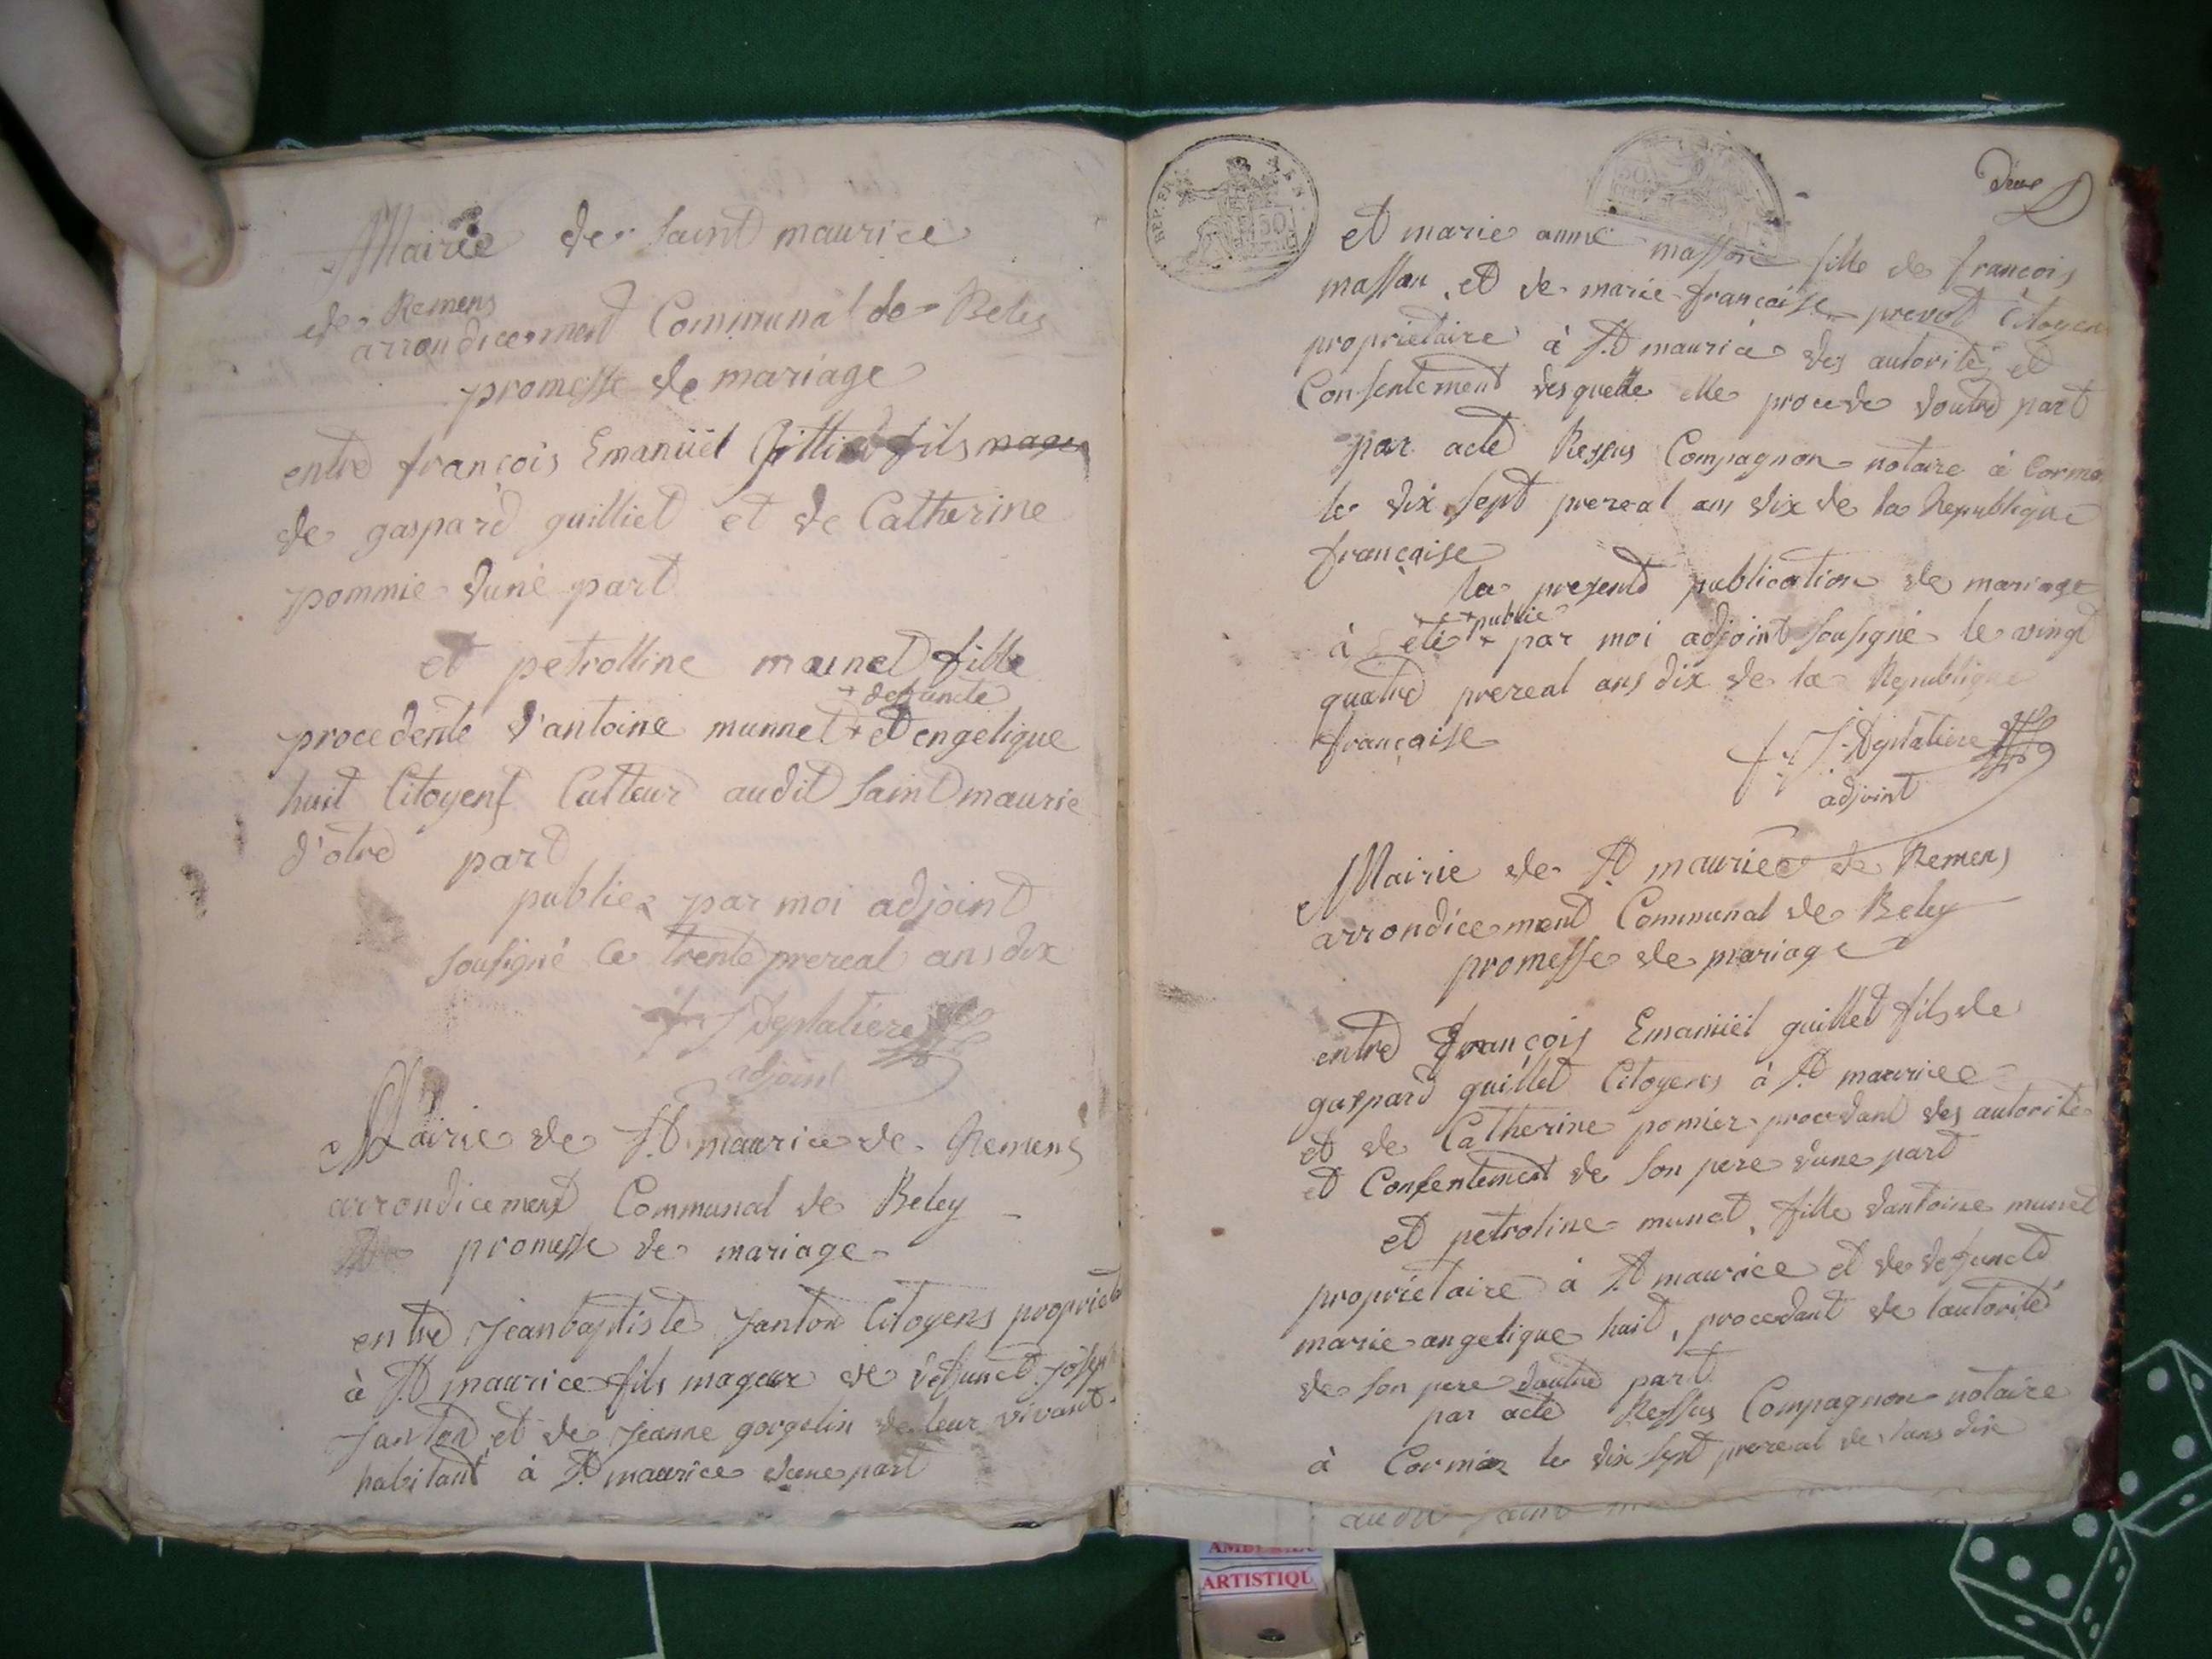 Mairie de saint maurice
de Remens
arrondicement Communal de Beley
promesse de mariage
entre françois Emanüel fils
de gaspard guilliet et de Catherine
pommie d'une part
et petrolline munet fille
+ defuncte
procedente d'antoine munnet + et engelique
huit Citoyens Culteur audit saint maurie
d'otre part
publiez par moi adjoint
sousigné le trente prereal ans dix
J Deplatiere
adjoint
Mairie de St maurice de Remens
arrondicement Communal de Beley
promesse de mariage
entre Jeanbaptiste Janton Citoyens propriet
à St maurice fils mageur de defunct joseph
Janton et de Jeanne gorgelin de leur vivant
habitant à St maurice dune part
deux
REP. FRA. 50
50
et marie anne masson fille de françois
massau et de marie françoise prevot Citoyen
proprietaire à St maurice des autorité et
Consentement desquelle elle procede doutre part
par acte Ressus Compagnon notaire à Cormo
le dix sept prereal ans dix de la Republique
française
la presente publication de mariage
+ publié
à été + par moi adjoint sousigné le vingt
quatre prereal ans dix de la Republique
française
J Deplatiere
adjoint
Mairie de St maurice de Remens
arrondicement Communal de Beley
promesse de mariage
entre françois Emanüel guillet fils de
gaspard guillet Citoyens à St maurice
et de Catherine pomier procedant des autorité
et Consentement de son pere dune part
et petroline munet, fille dantoine munet
proprietaire à St maurice et de defuncte
marie angelique huit, procedant de lautorité
de son pere dautre part
par acte Ressus Compagnon notaire
à Cormoz le dix sept prereal de lans dix
ARTISTIQU